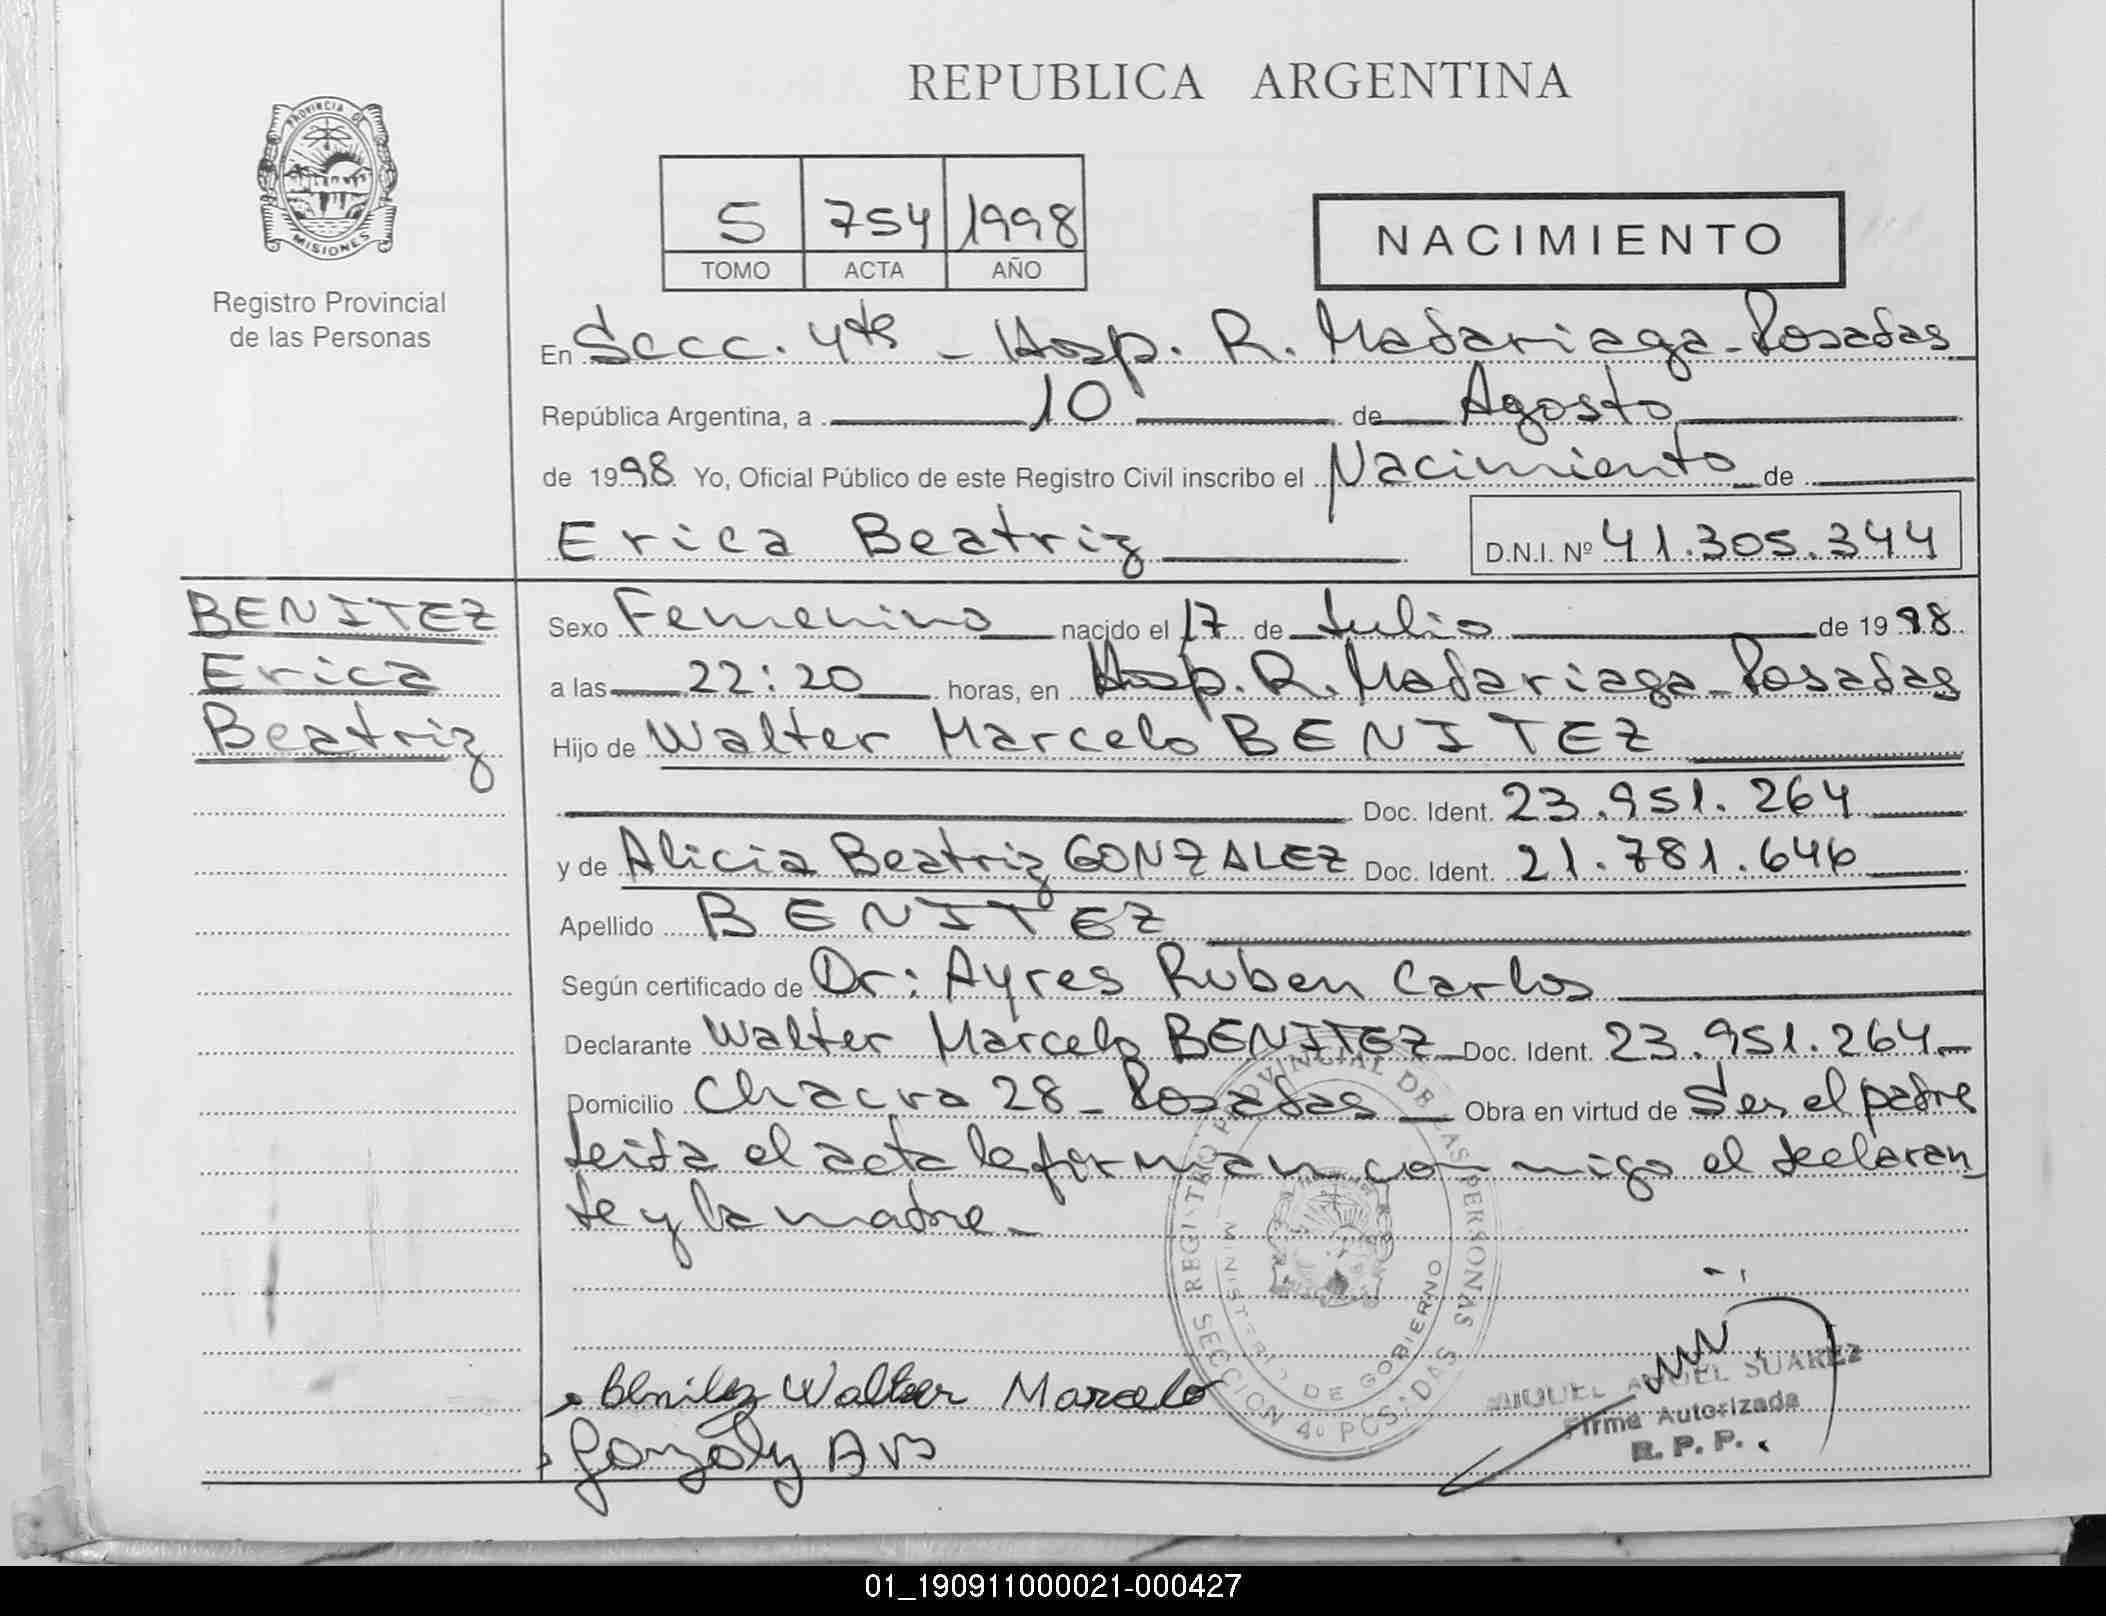 REPUBLICA ARGENTINA
PROVINCIA DE
MISIONES
Registro Provincial
de las Personas
5 754 1998
TOMO ACTA AÑO
NACIMIENTO
En Secc. 4ta - Hosp. R. Madariaga - Posadas
República Argentina, a 10 de Agosto
de 1998 Yo, Oficial Público de este Registro Civil inscribo el Nacimiento de
Erica Beatriz D.N.I. Nº 41.305.344
BENITEZ
Erica
Beatriz
Sexo Femenino nacido el 17 de Julio de 1998
a las 22:20 horas, en Hosp. R. Madariaga - Posadas
Hijo de Walter Marcelo BENITEZ
Doc. Ident. 23.951.264
y de Alicia Beatriz GONZALEZ Doc. Ident. 21.781.646
Apellido BENITEZ
Según certificado de Dr: Ayres Ruben Carlos
Declarante Walter Marcelo BENITEZ Doc. Ident. 23.951.264
Domicilio Chacra 28 - Posadas Obra en virtud de Ser el padre
Leida el acta la firman conmigo el declaran
te y la madre.
REGISTRO PROVINCIAL DE LAS PERSONAS
MINISTERIO DE GOBIERNO
SECCION 4º POSADAS
Benitez Walter Marcelo
MIGUEL ANGEL SUAREZ
Firma Autorizada
R. P. P.
01_190911000021-000427